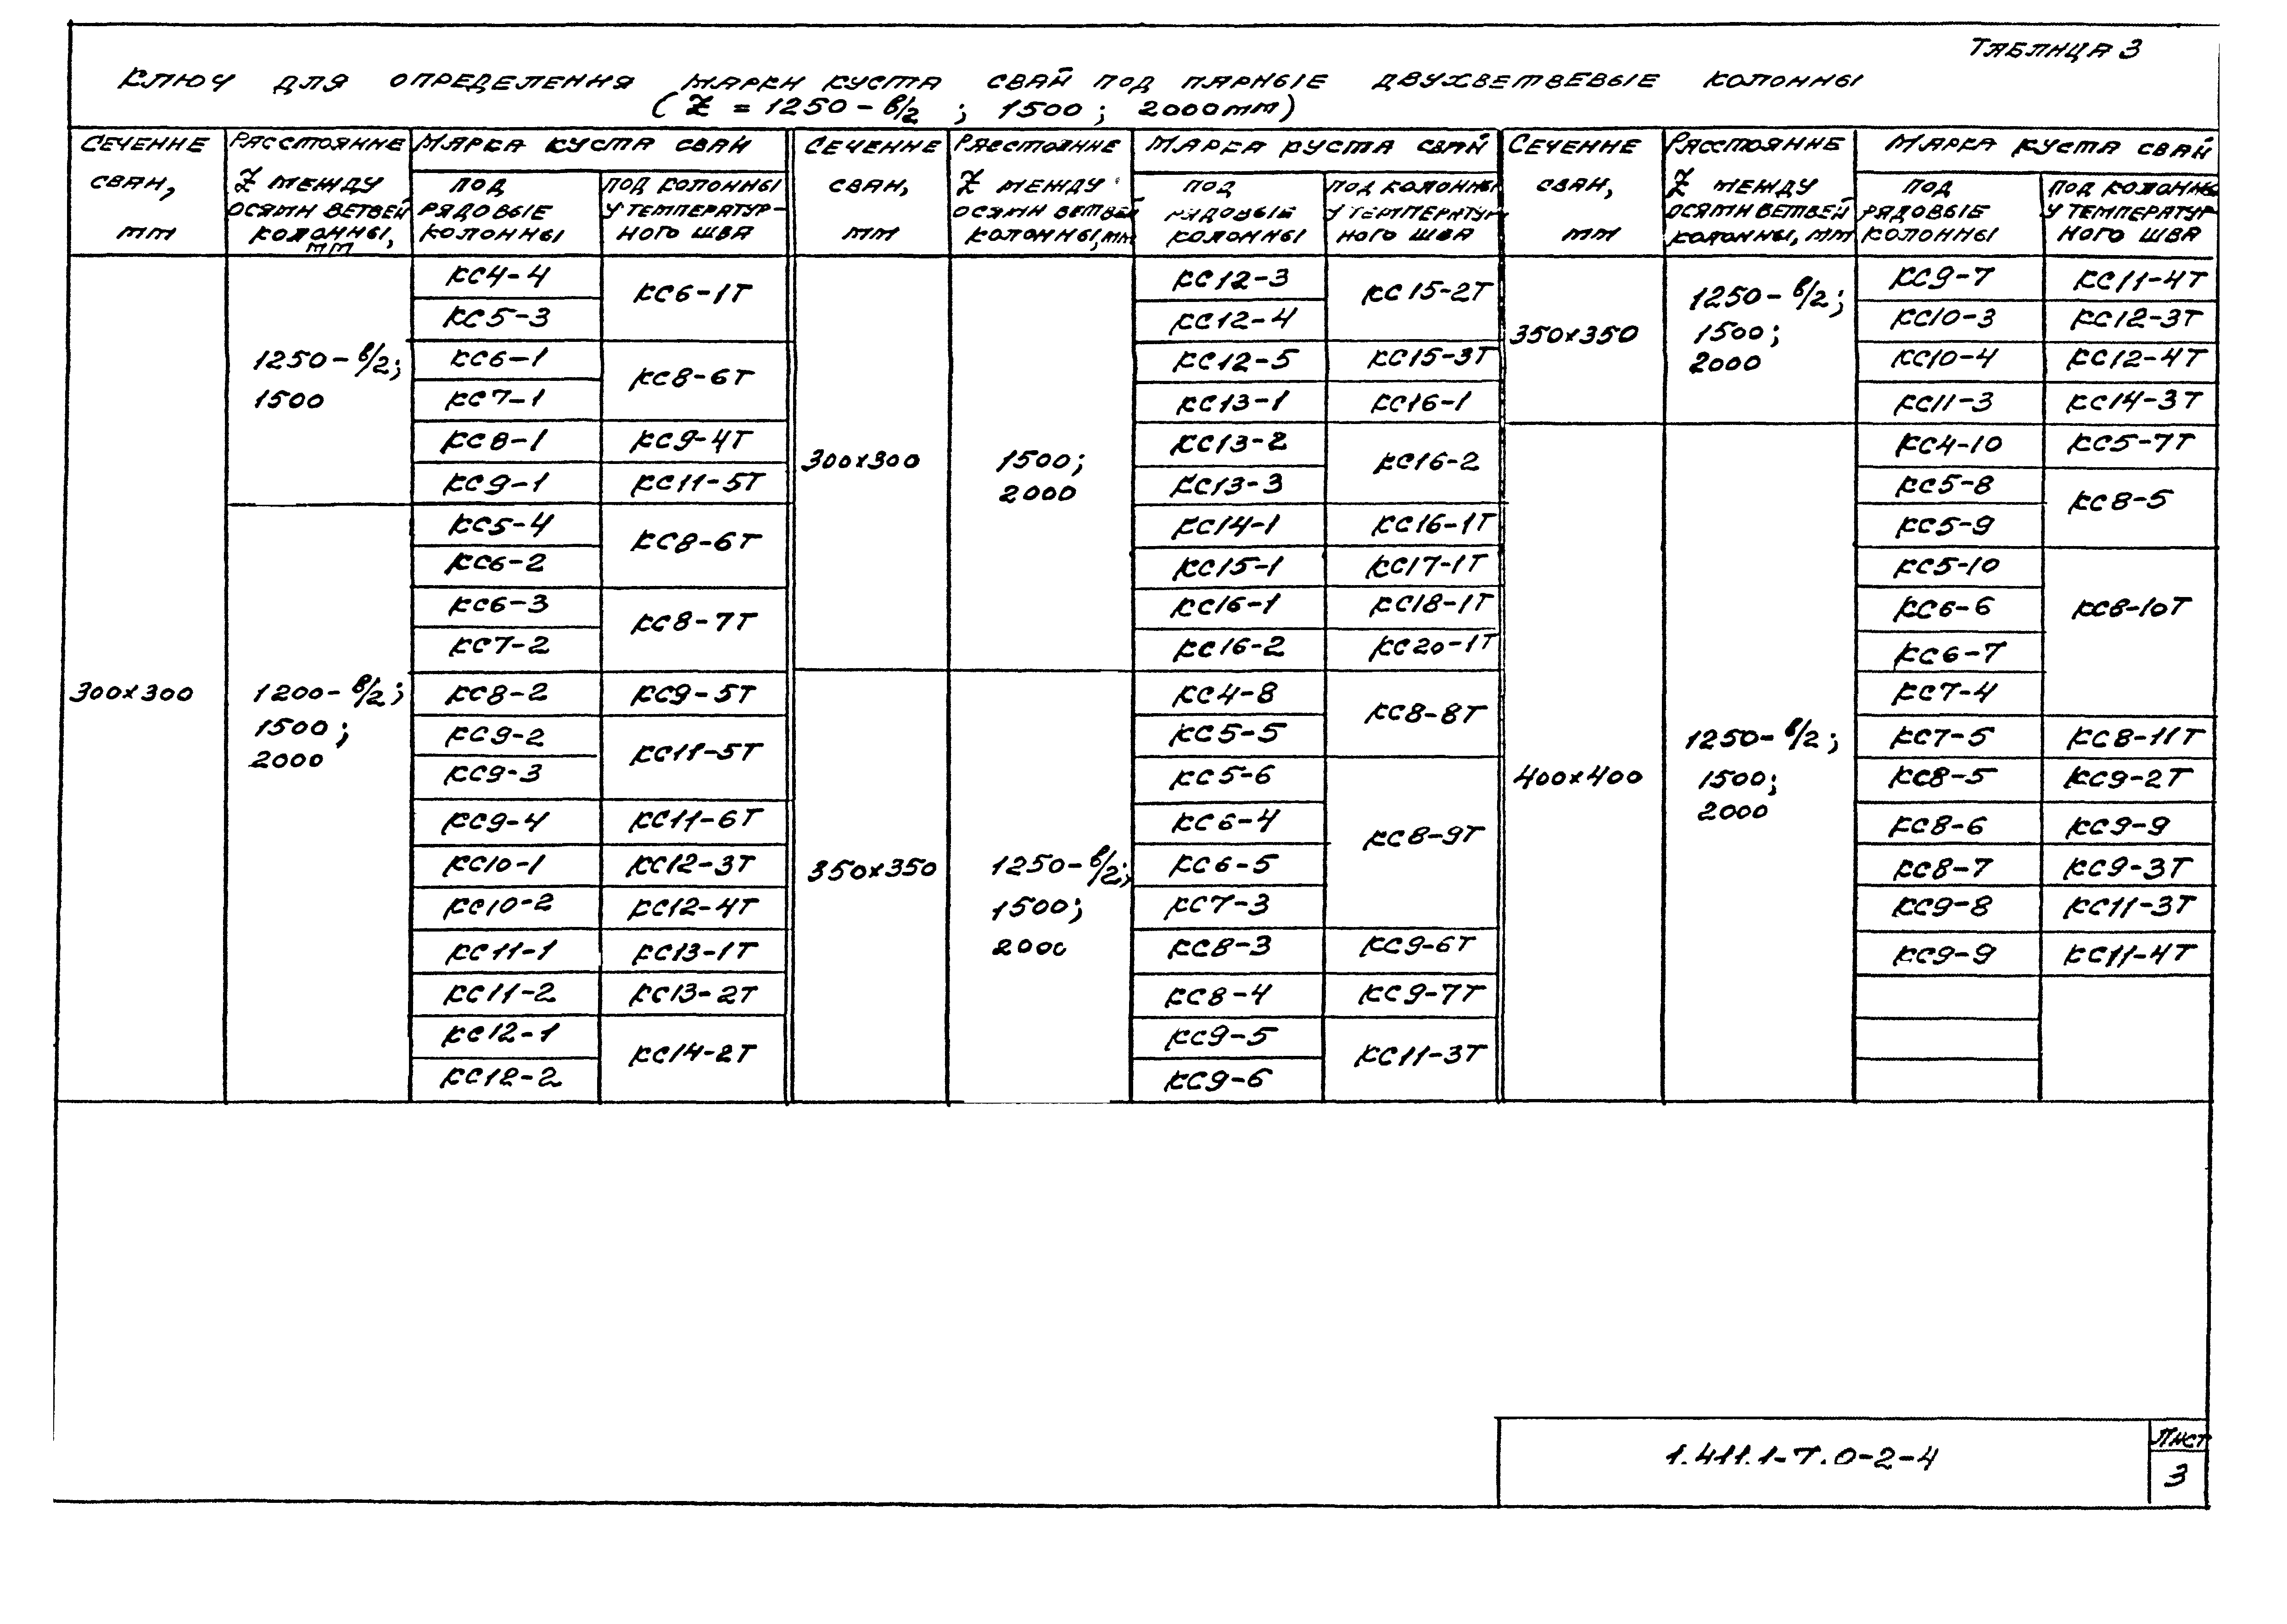 Таблица 3
Ключ для определения марки куста свай под парные двухветвевые колонны
(Z = 1250 - в/2 ; 1500 ; 2000мм)
Сечение сваи, мм
Расстояние Z между осями ветвей колонны, мм
Марка куста свай
под рядовые колонны
под колонны у температурного шва
Сечение сваи, мм
Расстояние Z между осями ветвей колонны, мм
Марка куста свай
под рядовые колонны
под колонны у температурного шва
Сечение сваи, мм
Расстояние Z между осями ветвей колонны, мм
Марка куста свай
под рядовые колонны
под колонны у температурного шва
300х300
1250 - в/2;
1500
КС4-4
КС5-3
КС6-1Т
КС6-1
КС7-1
КС8-6Т
КС8-1 КС9-4Т
КС9-1 КС11-5Т
1200 - в/2;
1500;
2000
КС5-4
КС6-2
КС8-6Т
КС6-3
КС7-2
КС8-7Т
КС8-2 КС9-5Т
КС9-2
КС9-3
КС11-5Т
КС9-4 КС11-6Т
КС10-1 КС12-3Т
КС10-2 КС12-4Т
КС11-1 КС13-1Т
КС11-2 КС13-2Т
КС12-1
КС12-2
КС14-2Т
300х300
1500;
2000
КС12-3
КС12-4
КС15-2Т
КС12-5 КС15-3Т
КС13-1 КС16-1
КС13-2
КС13-3
КС16-2
КС14-1 КС16-1Т
КС15-1 КС17-1Т
КС16-1 КС18-1Т
КС16-2 КС20-1Т
350х350
1250 - в/2;
1500;
2000
КС4-8
КС5-5
КС8-8Т
КС5-6
КС6-4
КС6-5
КС7-3
КС8-9Т
КС8-3 КС9-6Т
КС8-4 КС9-7Т
КС9-5
КС9-6
КС11-3Т
350х350
1250 - в/2;
1500;
2000
КС9-7 КС11-4Т
КС10-3 КС12-3Т
КС10-4 КС12-4Т
КС11-3 КС14-3Т
400х400
1250 - в/2;
1500;
2000
КС4-10 КС5-7Т
КС5-8
КС5-9
КС8-5
КС5-10
КС6-6
КС6-7
КС7-4
КС8-10Т
КС7-5 КС8-11Т
КС8-5 КС9-2Т
КС8-6 КС9-9
КС8-7 КС9-3Т
КС9-8 КС11-3Т
КС9-9 КС11-4Т
1.411.1-7.0-2-4
Лист
3